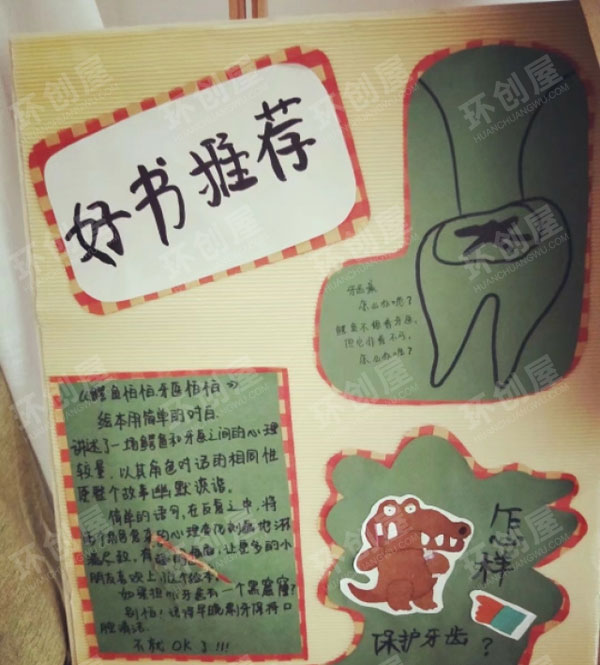 好书推荐
牙齿疼
怎么办呢?
鳄鱼不想看牙医,
但它非看不可,
怎么办呢?
《鳄鱼怕怕牙医怕怕》
绘本用简单的对白,
讲述了一场鳄鱼和牙医之间的心理
较量,以其角色对话的相同性
使整个故事幽默诙谐。
简单的语句,在反复之中,将
两个角色复杂的心理刻画地淋
漓尽致。有趣的画面,让更多的小
朋友喜欢上这个绘本,
如果担心牙医有一个黑窟窿
别怕!记得早晚刷牙保持口
腔清洁
不就OK了!!!
怎样
保护牙齿?
环创屋
HUANCHUANGWU.COM